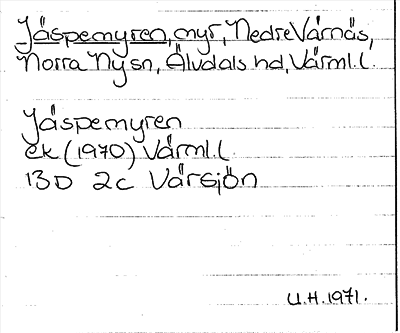 Jäspemyren, myr, Nedre Värnäs,
Norra Nysn, Älvdals hd, Värml. l.
Jäspemyren
ek (1970) Värml. l
13D 2c Vårsjön
U.H. 1971.